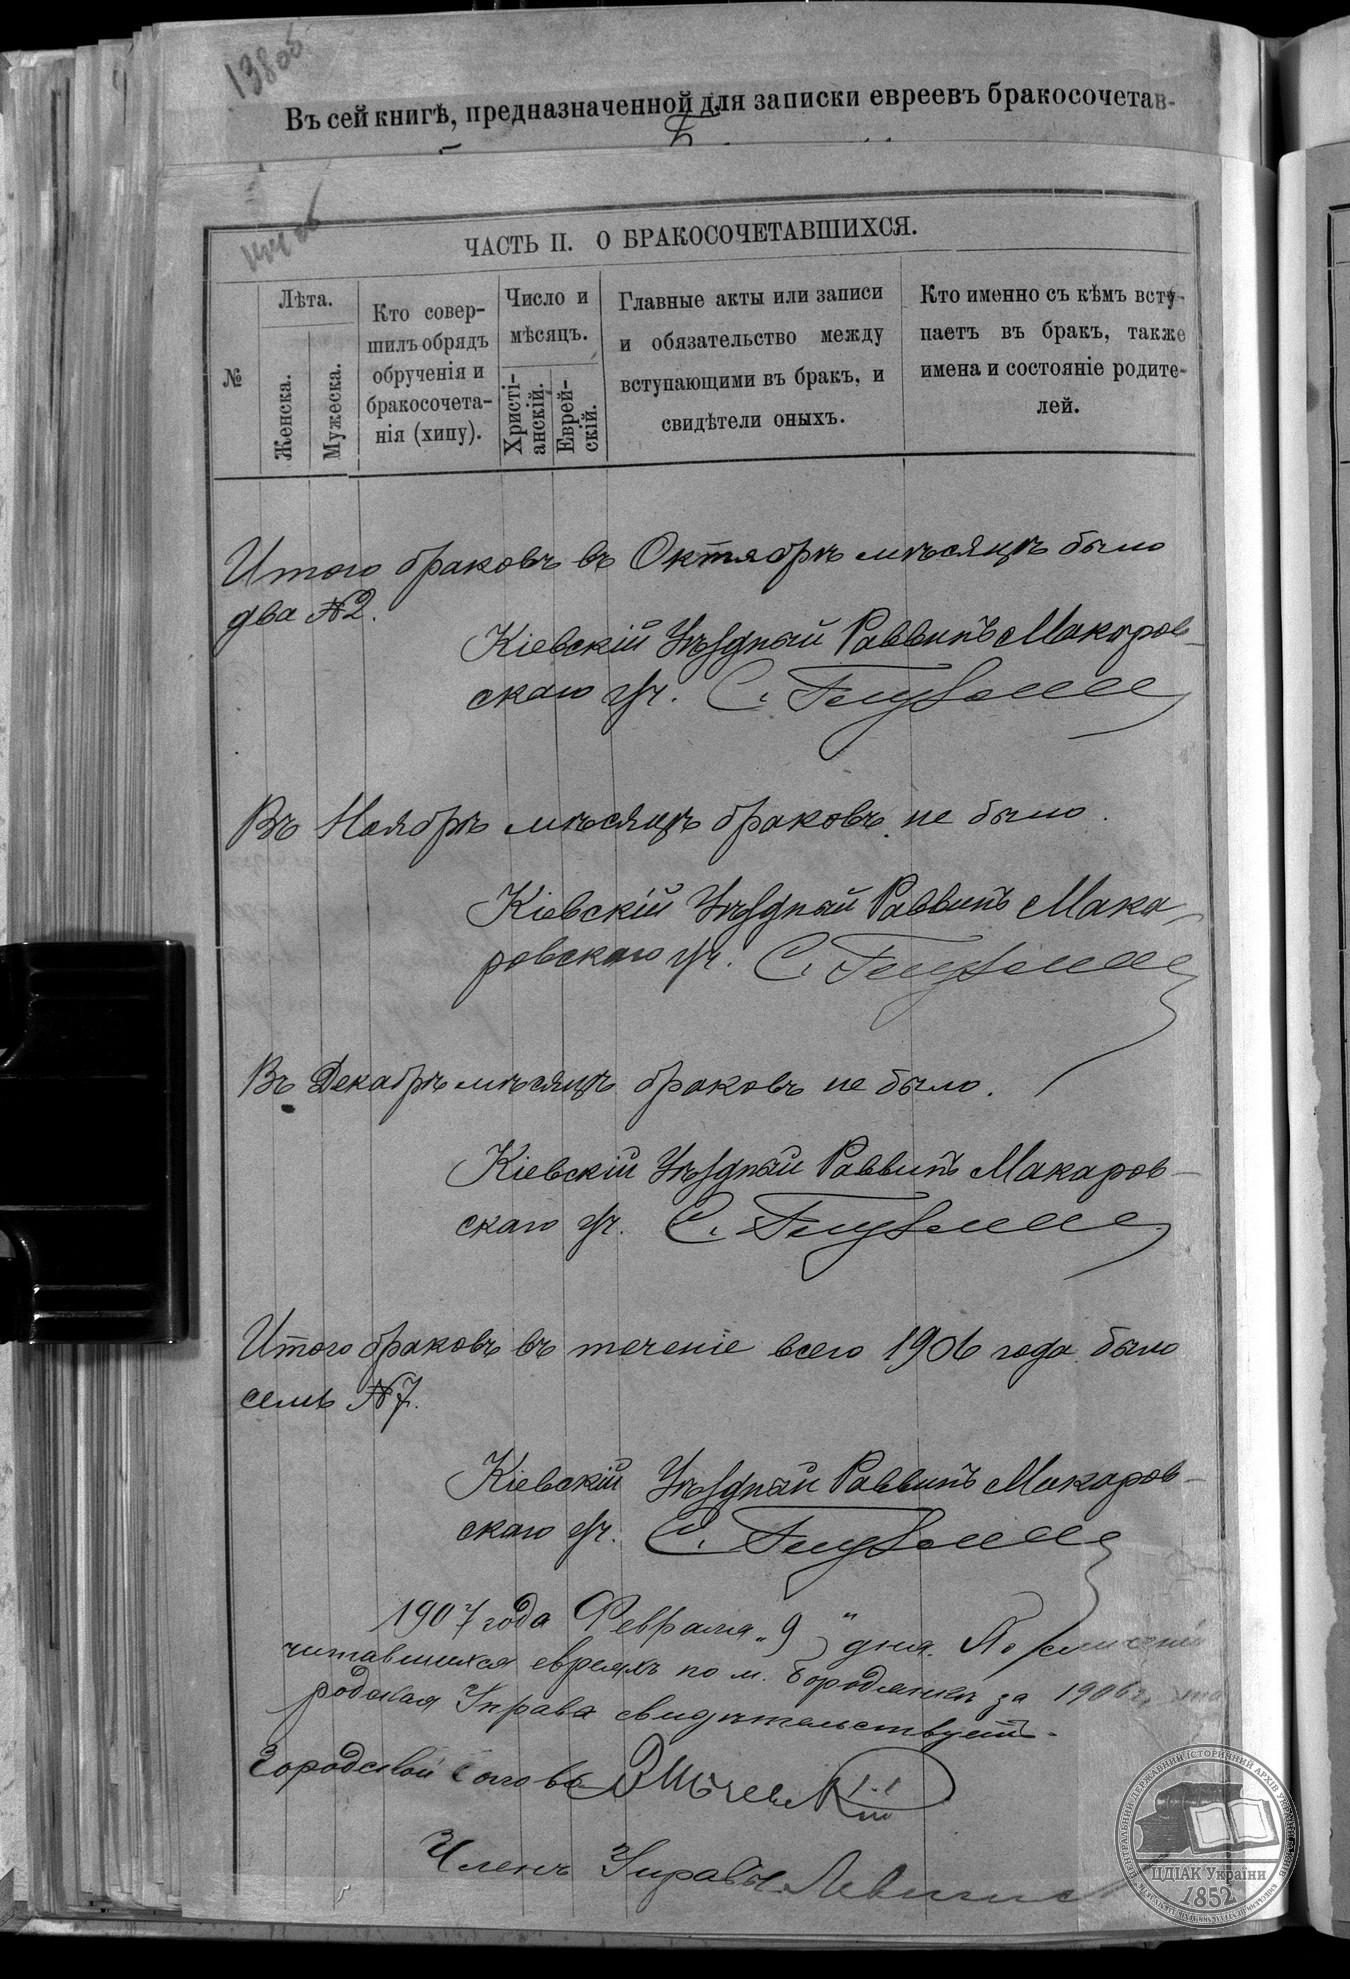 138об
Въ сей книгѣ, предназначенной для записки евреевъ бракосочетав-
ЧАСТЬ II. О БРАКОСОЧЕТАВШИХСЯ.
№
Лѣта.
Женска.
Мужеска.
Кто совер-
шилъ обрядъ
обрученія и
бракосочета-
нія (хипу).
Число и
мѣсяцъ.
Христі-
анскій.
Еврей-
скій.
Главные акты или записи
и обязательство между
вступающими въ бракъ, и
свидѣтели оныхъ.
Кто именно съ кѣмъ всту-
паетъ въ бракъ, также
имена и состояніе родите-
лей.
Итого браковъ въ Октябрѣ мѣсяцѣ было
два №2.
Кіевскій Уѣздный Раввинъ Макаров-
скаго уч. С.
Въ Ноябрѣ мѣсяцѣ браковъ не было.
Кіевскій Уѣздный Раввинъ Мака-
ровскаго уч. С.
Въ Декабрѣ мѣсяцѣ браковъ не было.
Кіевскій Уѣздный Раввинъ Макаров-
скаго уч. С.
Итого браковъ въ теченіе всего 1906 года было
семь №7.
Кіевскій Уѣздный Раввинъ Макаров-
скаго уч. С.
1907 года Февраля „9" дня.
евреяхъ по м. Бородянкѣ за 1906 г.
родская Управа свидѣтельствуетъ.
Городской Голова
Членъ Управы
ЦЕНТРАЛЬНИЙ ДЕРЖАВНИЙ ІСТОРИЧНИЙ АРХІВ УКРАЇНИ
ЦДІАК України
1852